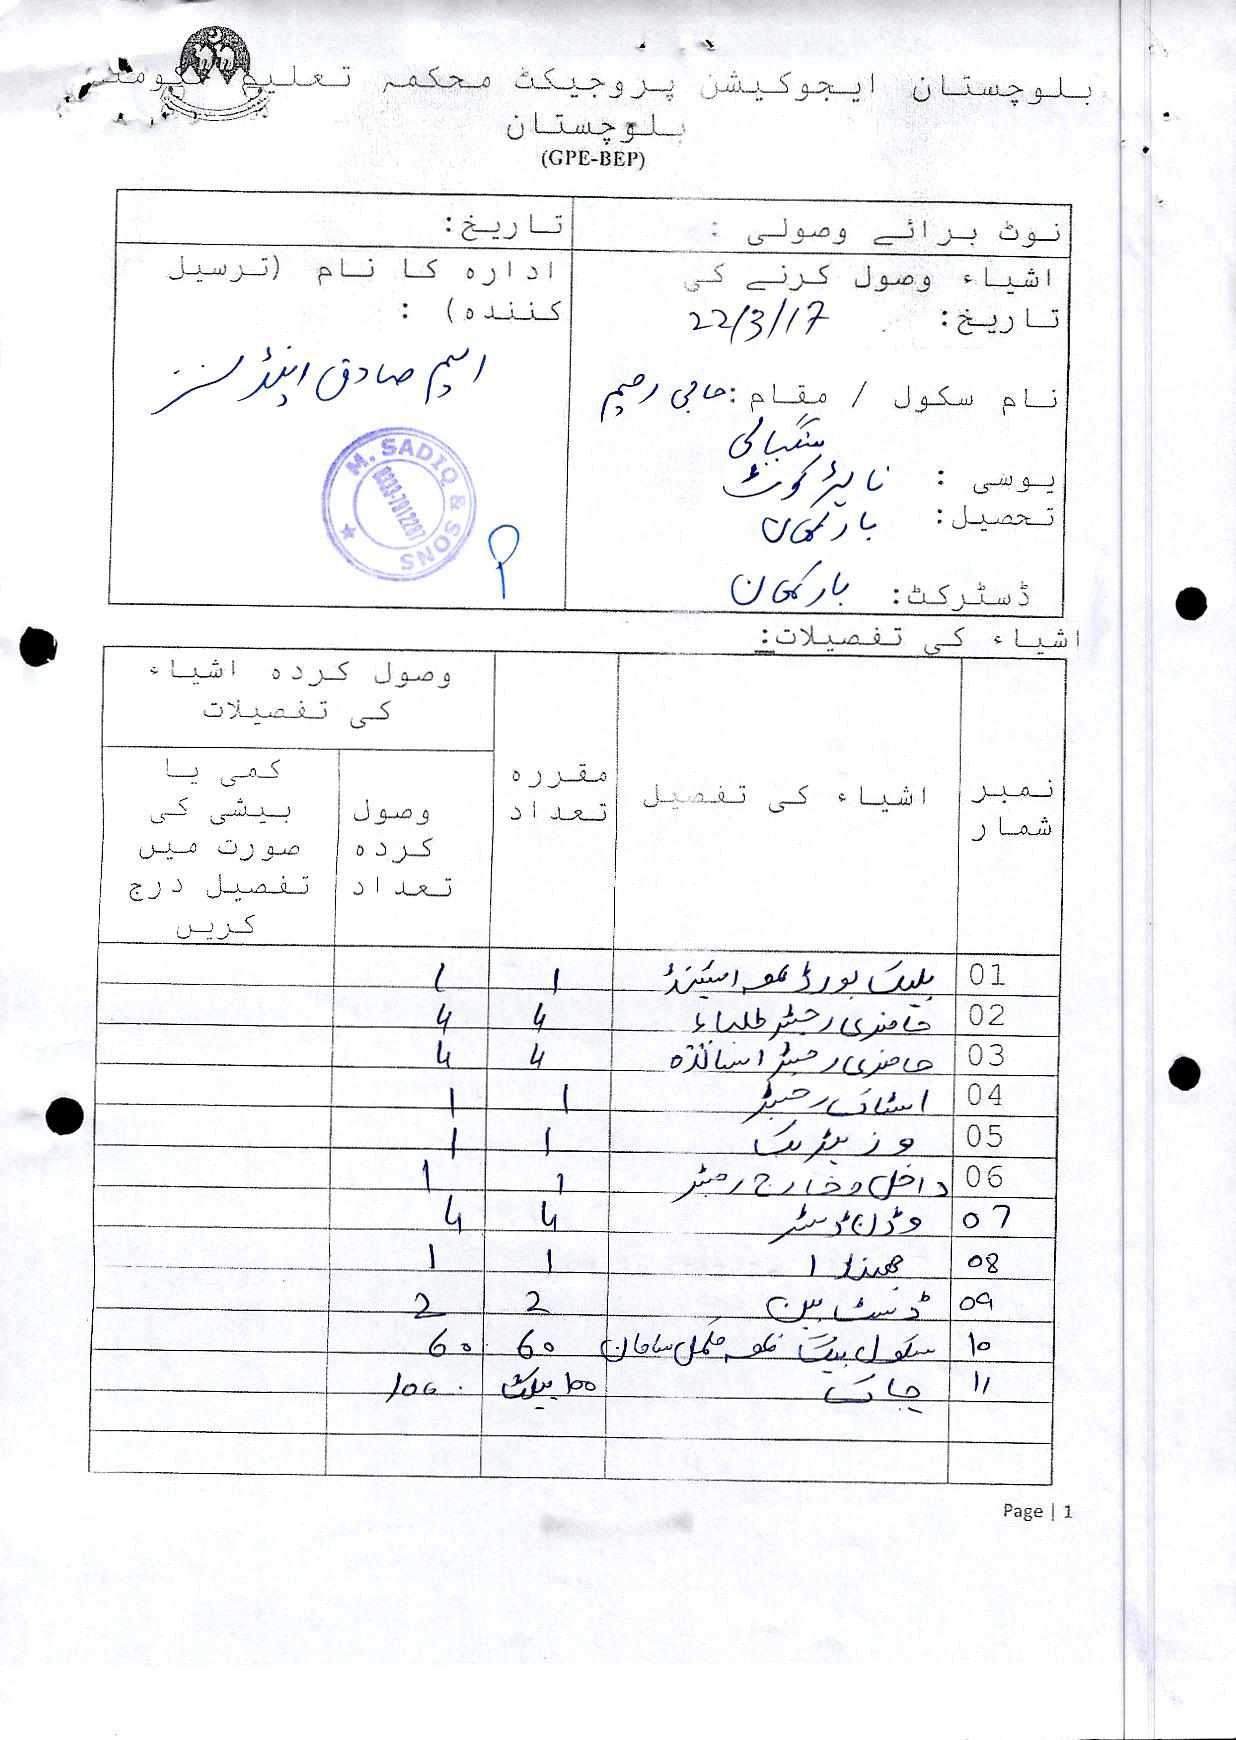 بلوچستان ایجوکیشن پروجیکٹ محکمہ تعلیم حکومت
بلوچستان
(GPE-BEP)
نوٹ برائے وصولی :
تاریخ:
اشیاء وصول کرنے کی
تاریخ: 22/3/17
نام سکول / مقام: حاجی رحیم
یوسی : کوٹ
تحصیل: بارکھان
ڈسٹرکٹ: بارکھان
ادارہ کا نام (ترسیل
کنندہ) :
ایم صادق اینڈ سنز
M. SADIQ & SONS
اشیاء کی تفصیلات:
نمبر شمار
اشیاء کی تفصیل
مقررہ تعداد
وصول کردہ اشیاء
کی تفصیلات
وصول کردہ تعداد
کمی یا
بیشی کی
صورت میں
تفصیل درج
کریں
01 بلیک بورڈ بمعہ اسٹینڈ 1 1
02 حاضری رجسٹر طلباء 4 4
03 حاضری رجسٹر اساتذہ 4 4
04 اسٹاک رجسٹر 1 1
05 وزیٹر بک 1 1
06 داخل و خارج رجسٹر 1 1
07 وڈن ڈسٹر 4 4
08 جھنڈا 1 1
09 ڈسٹ بین 2 2
10 سکول بیگ بمعہ مکمل سامان 60 60
11 چاک 100 پیکٹ 100
Page | 1